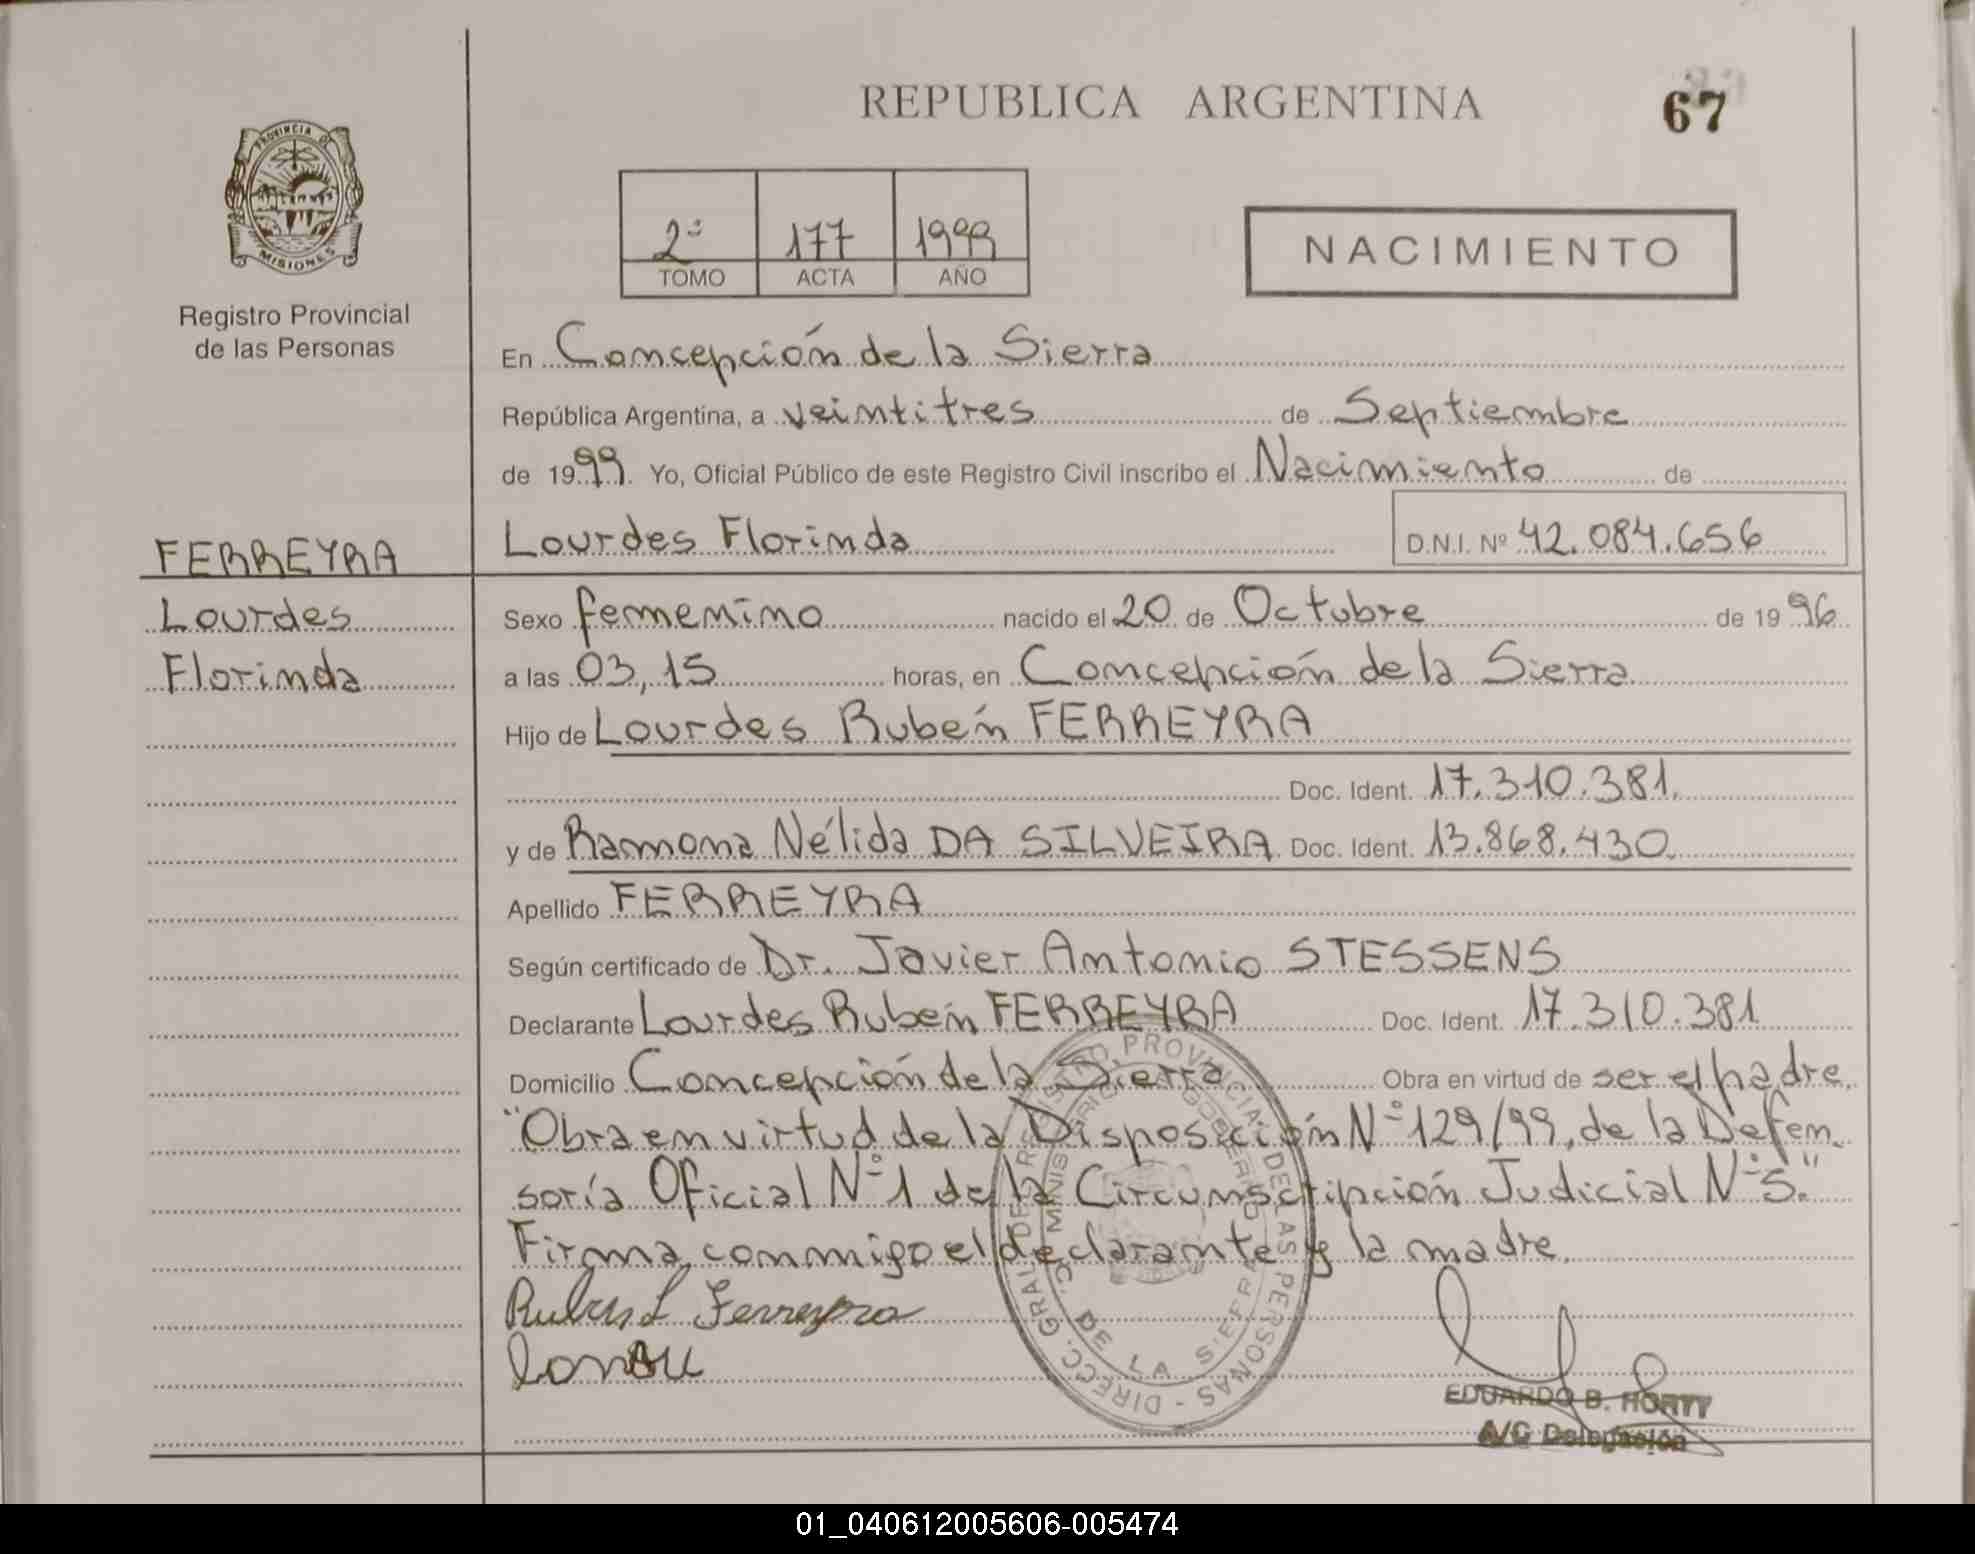 REPUBLICA ARGENTINA
67
PROVINCIA DE
MISIONES
Registro Provincial
de las Personas
2º 177 1999
TOMO ACTA AÑO
NACIMIENTO
En Concepción de la Sierra
República Argentina, a veintitres de Septiembre
de 1999. Yo, Oficial Público de este Registro Civil inscribo el Nacimiento de
FERREYRA
Lourdes Florinda D.N.I. Nº 42.084.656
Lourdes
Sexo femenino nacido el 20 de Octubre de 1996
Florinda
a las 03,15 horas, en Concepción de la Sierra
Hijo de Lourdes Rubén FERREYRA
Doc. Ident. 17.310.381.
y de Ramona Nélida DA SILVEIRA Doc. Ident. 13.868.430.
Apellido FERREYRA
Según certificado de Dr. Javier Antonio STESSENS
Declarante Lourdes Rubén FERREYRA Doc. Ident. 17.310.381
Domicilio Concepción de la Sierra Obra en virtud de ser el padre.
"Obra en virtud de la Disposición Nº 129/99, de la Defen-
soría Oficial Nº 1 de la Circunscripción Judicial Nº 5."
Firma conmigo el declarante y la madre.
Ruben L Ferreyra
DIRECC. GRAL. DE REGISTRO PROVINCIAL DE LAS PERSONAS -
MINISTERIO GOBIERNO
DE LA SIERRA
EDUARDO B. HORTY
A/C Delegación
01_040612005606-005474